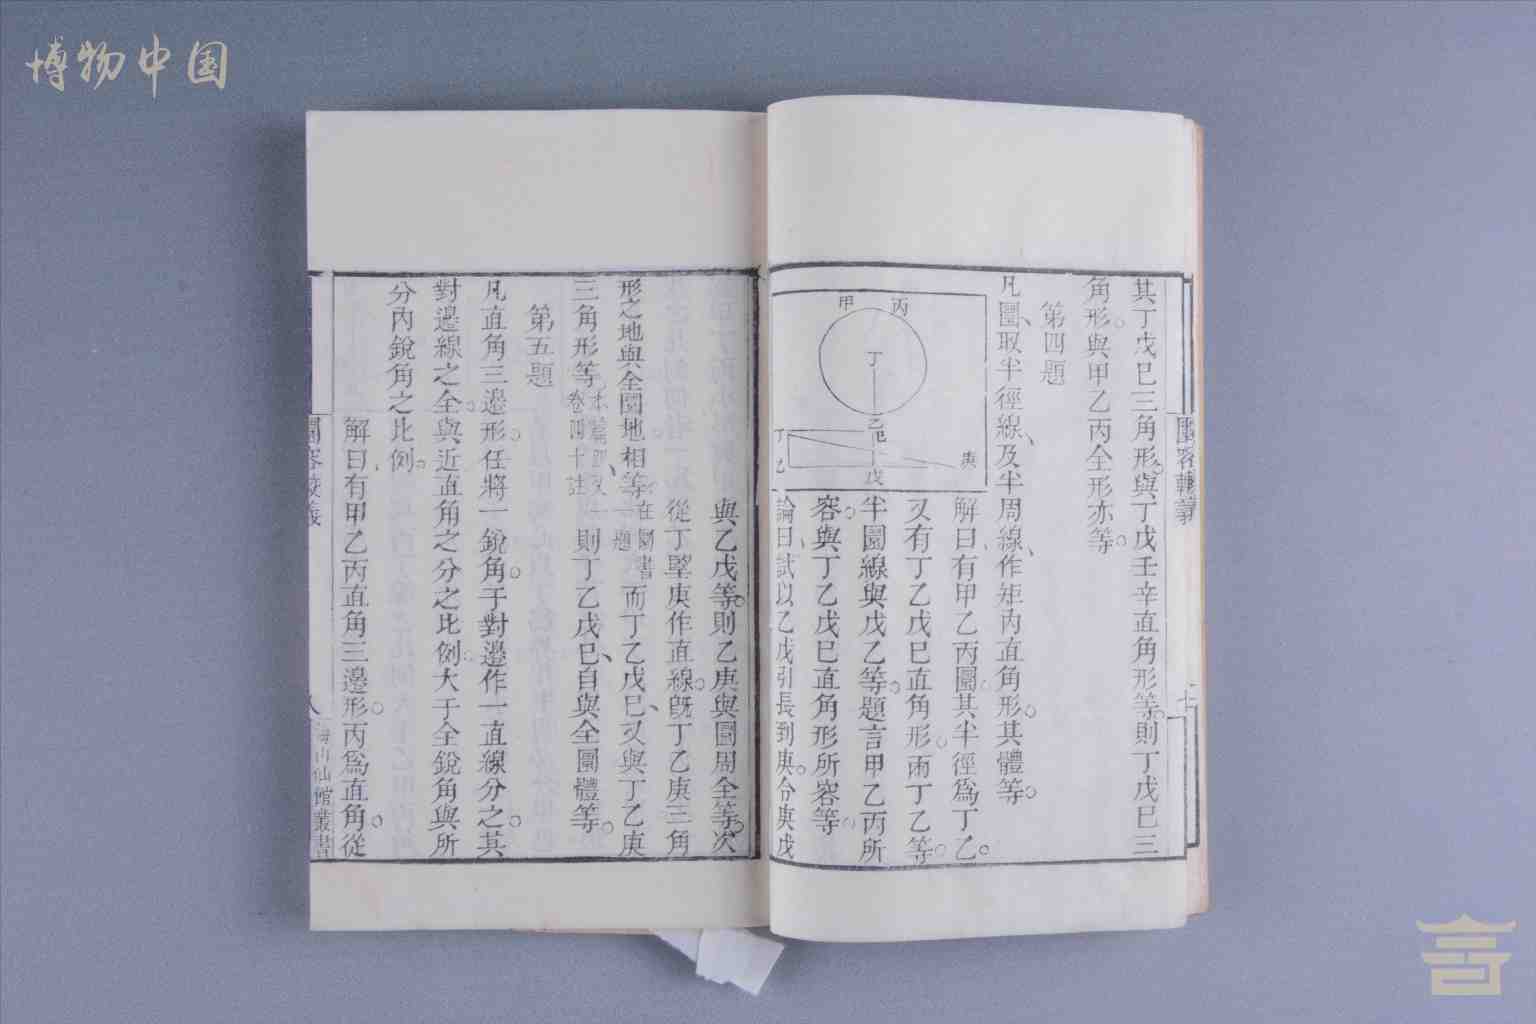 博物中国
其丁戊巳三角形與丁戊壬辛直角形等則丁戊巳三
角形與甲乙丙全形亦等
第四題
凡圜取半徑線及半周線作矩內直角形其體等
解曰有甲乙丙圜其半徑為丁乙
又有丁乙戊巳直角形兩丁乙等
半圜線與戊乙等題言甲乙丙所
容與丁乙戊巳直角形所容等
論曰試以乙戊引長到庚令庚戊
甲
丙
丁
乙
巳
戊
丁
乙
庚
與乙戊等則乙庚與圜周全等次
從丁望庚作直線既丁乙庚三角
形之地與全圜地相等在圜書一題而丁乙戊巳又與丁乙庚
三角形等本篇四又一卷四十註則丁乙戊巳自與全圜體等
第五題
凡直角三邊形任將一銳角于對邊作一直線分之其
對邊線之全與近直角之分之比例大于全銳角與所
分內銳角之比例
解曰有甲乙丙直角三邊形丙為直角從
圜容較義
八
海山仙館叢書